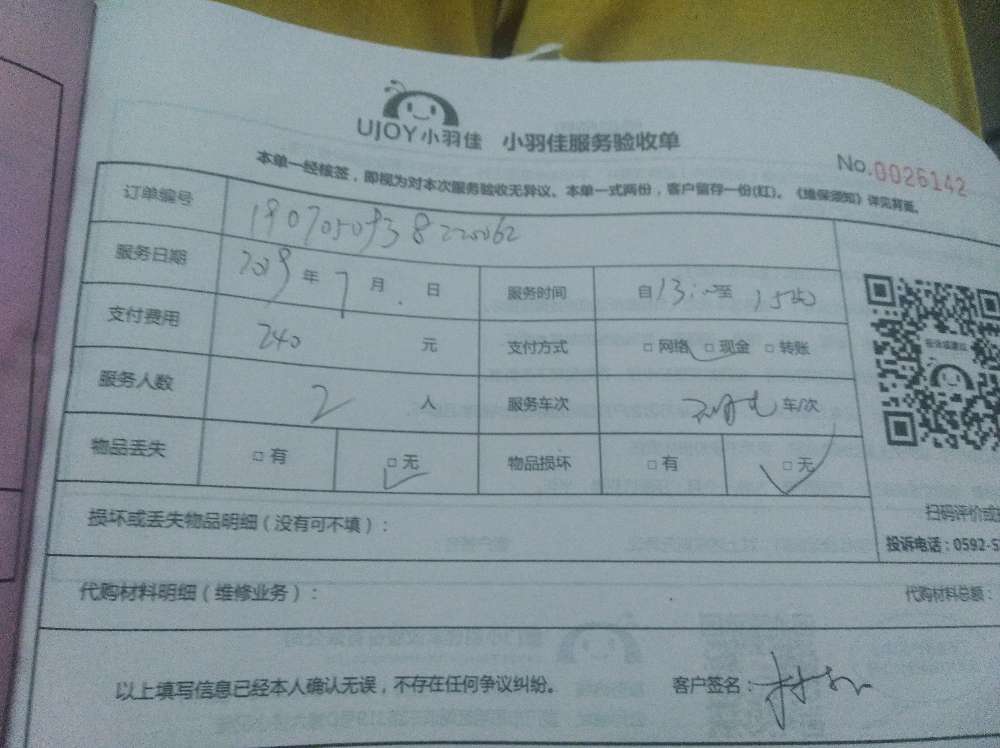 UJOY小羽佳 小羽佳服务验收单
No.0026142
本单一经核签，即视为对本次服务验收无异议。本单一式两份，客户留存一份(红)。《维保须知》详见背面。
订单编号
服务日期 2019年7月 日 服务时间 自13:00至15:00
支付费用 240 元 支付方式 □网络 □现金 □转账
服务人数 2 人 服务车次 车/次
物品丢失 □有 □无 物品损坏 □有 □无
扫码评价或
损坏或丢失物品明细(没有可不填)：
投诉电话：0592-5
代购材料明细(维修业务)： 代购材料总额：
以上填写信息已经本人确认无误，不存在任何争议纠纷。 客户签名：